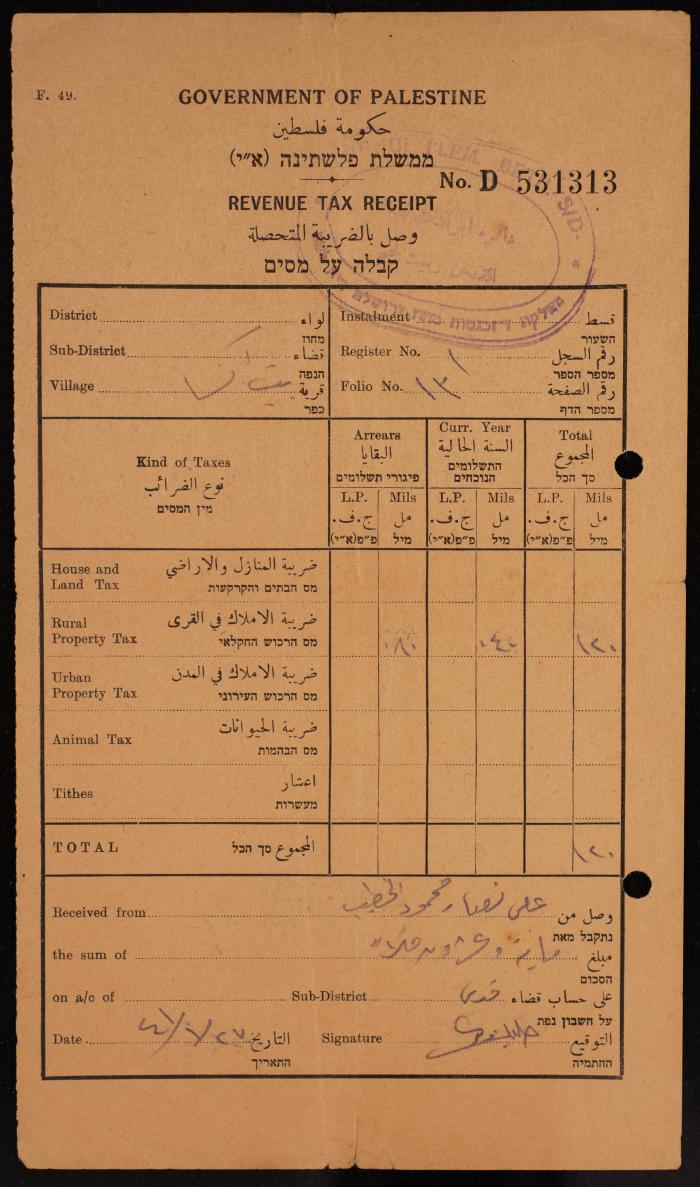 F. 49.
GOVERNMENT OF PALESTINE
حكومة فلسطين
ממשלת פלשתינה (א״י)
No. D 531313
REVENUE TAX RECEIPT
وصل بالضريبة المتحصلة
קבלה על מסים
District لواء
מחוז
Sub-District قضاء
הנפה
Village بيت اكسا قرية
כפר
Instalment قسط
השעור
Register No. ١ رقم السجل
מספר הספר
Folio No. ١٣١ رقم الصفحة
מספר הדף
Kind of Taxes
نوع الضرائب
מין המסים
Arrears
البقايا
פיגורי תשלומים
Curr. Year
السنة الحالية
התשלומים
הנוכחים
Total
المجموع
סך הכל
L.P. Mils L.P. Mils L.P. Mils
ج.ف. مل ج.ف. مل ج.ف. مل
פ״פ(א״י) מיל פ״פ(א״י) מיל פ״פ(א״י) מיל
House and ضريبة المنازل والاراضي
Land Tax מס הבתים והקרקעות
Rural ضريبة الاملاك في القرى
Property Tax מס הרכוש החקלאי
٠٨٠ ٠٤٠ ١٢٠
Urban ضريبة الاملاك في المدن
Property Tax מס הרכוש העירוני
Animal Tax ضريبة الحيوانات
מס הבהמות
Tithes اعشار
מעשרות
TOTAL المجموع סך הכל ١٢٠
Received from علي نصار محمود الخطيب وصل من
נתקבל מאת
the sum of ماية وعشرون ملا مبلغ
הסכום
on a/c of Sub-District قدس على حساب قضاء
על חשבון נפת
Date التاريخ
התאריך
Signature التوقيع
החתמיה